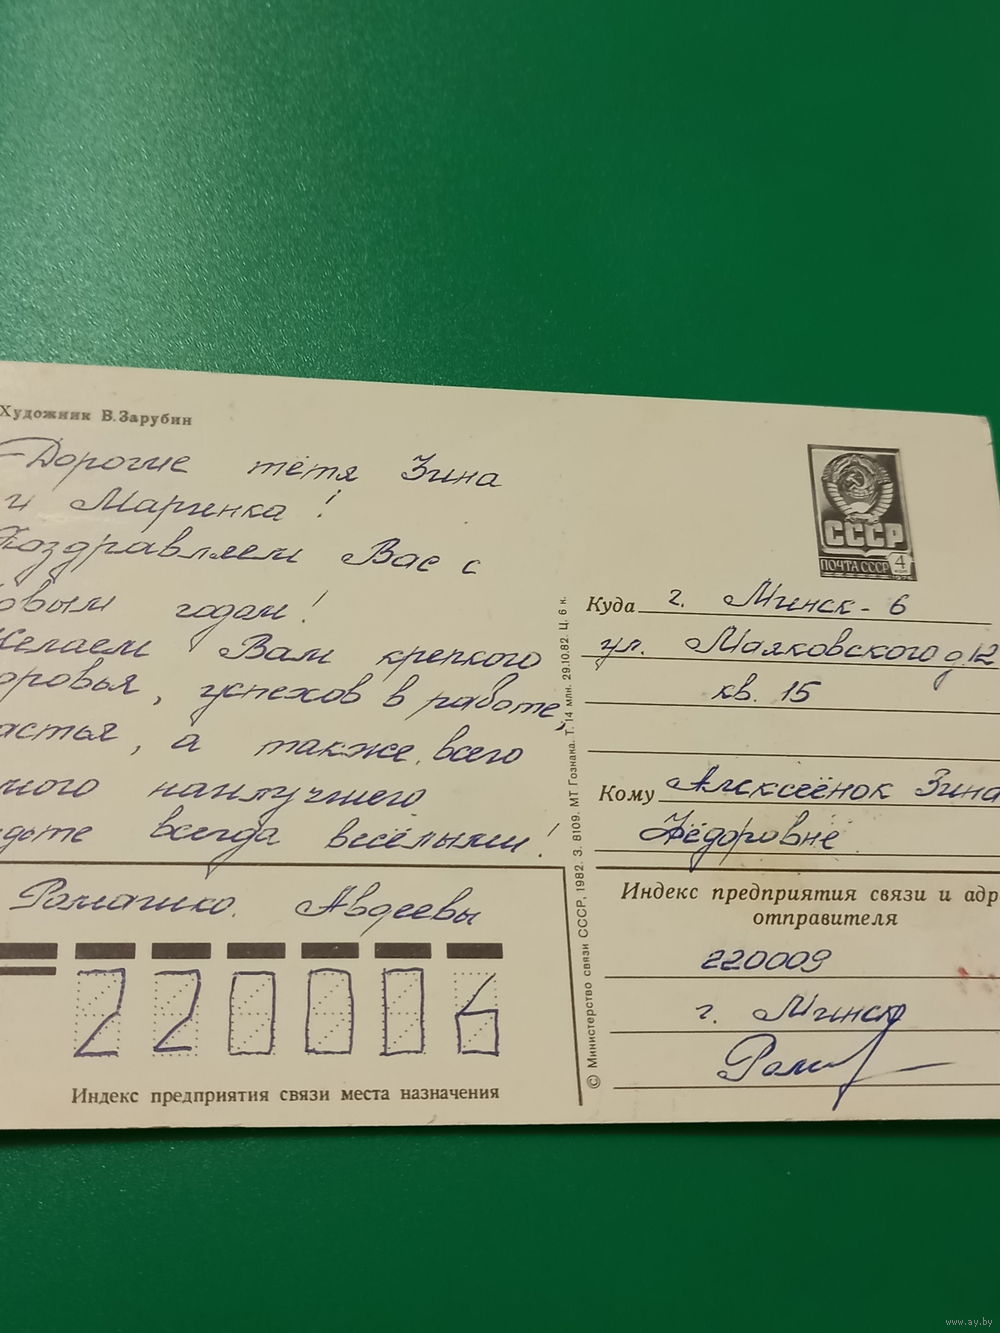 Художник В. Зарубин
Дорогие тётя Зина
и Маринка!
Поздравляем Вас с
овым годом!
Желаем Вам крепкого
оровья, успехов в работе,
астья, а также всего
мого наилучшего
дьте всегда весёлыми!
Ромашко. Авдеевы
220006
Индекс предприятия связи места назначения
© Министерство связи СССР, 1982. З. 8109. МТ Гознака. Т. 14 млн. 29.10.82. Ц. 6 к.
СССР
ПОЧТА СССР 4 коп
Куда г. Минск-6
ул. Маяковского д 12
кв. 15
Кому Алексеёнок Зина
Фёдоровне
Индекс предприятия связи и адр
отправителя
220009
г. Минск
www.ay.by